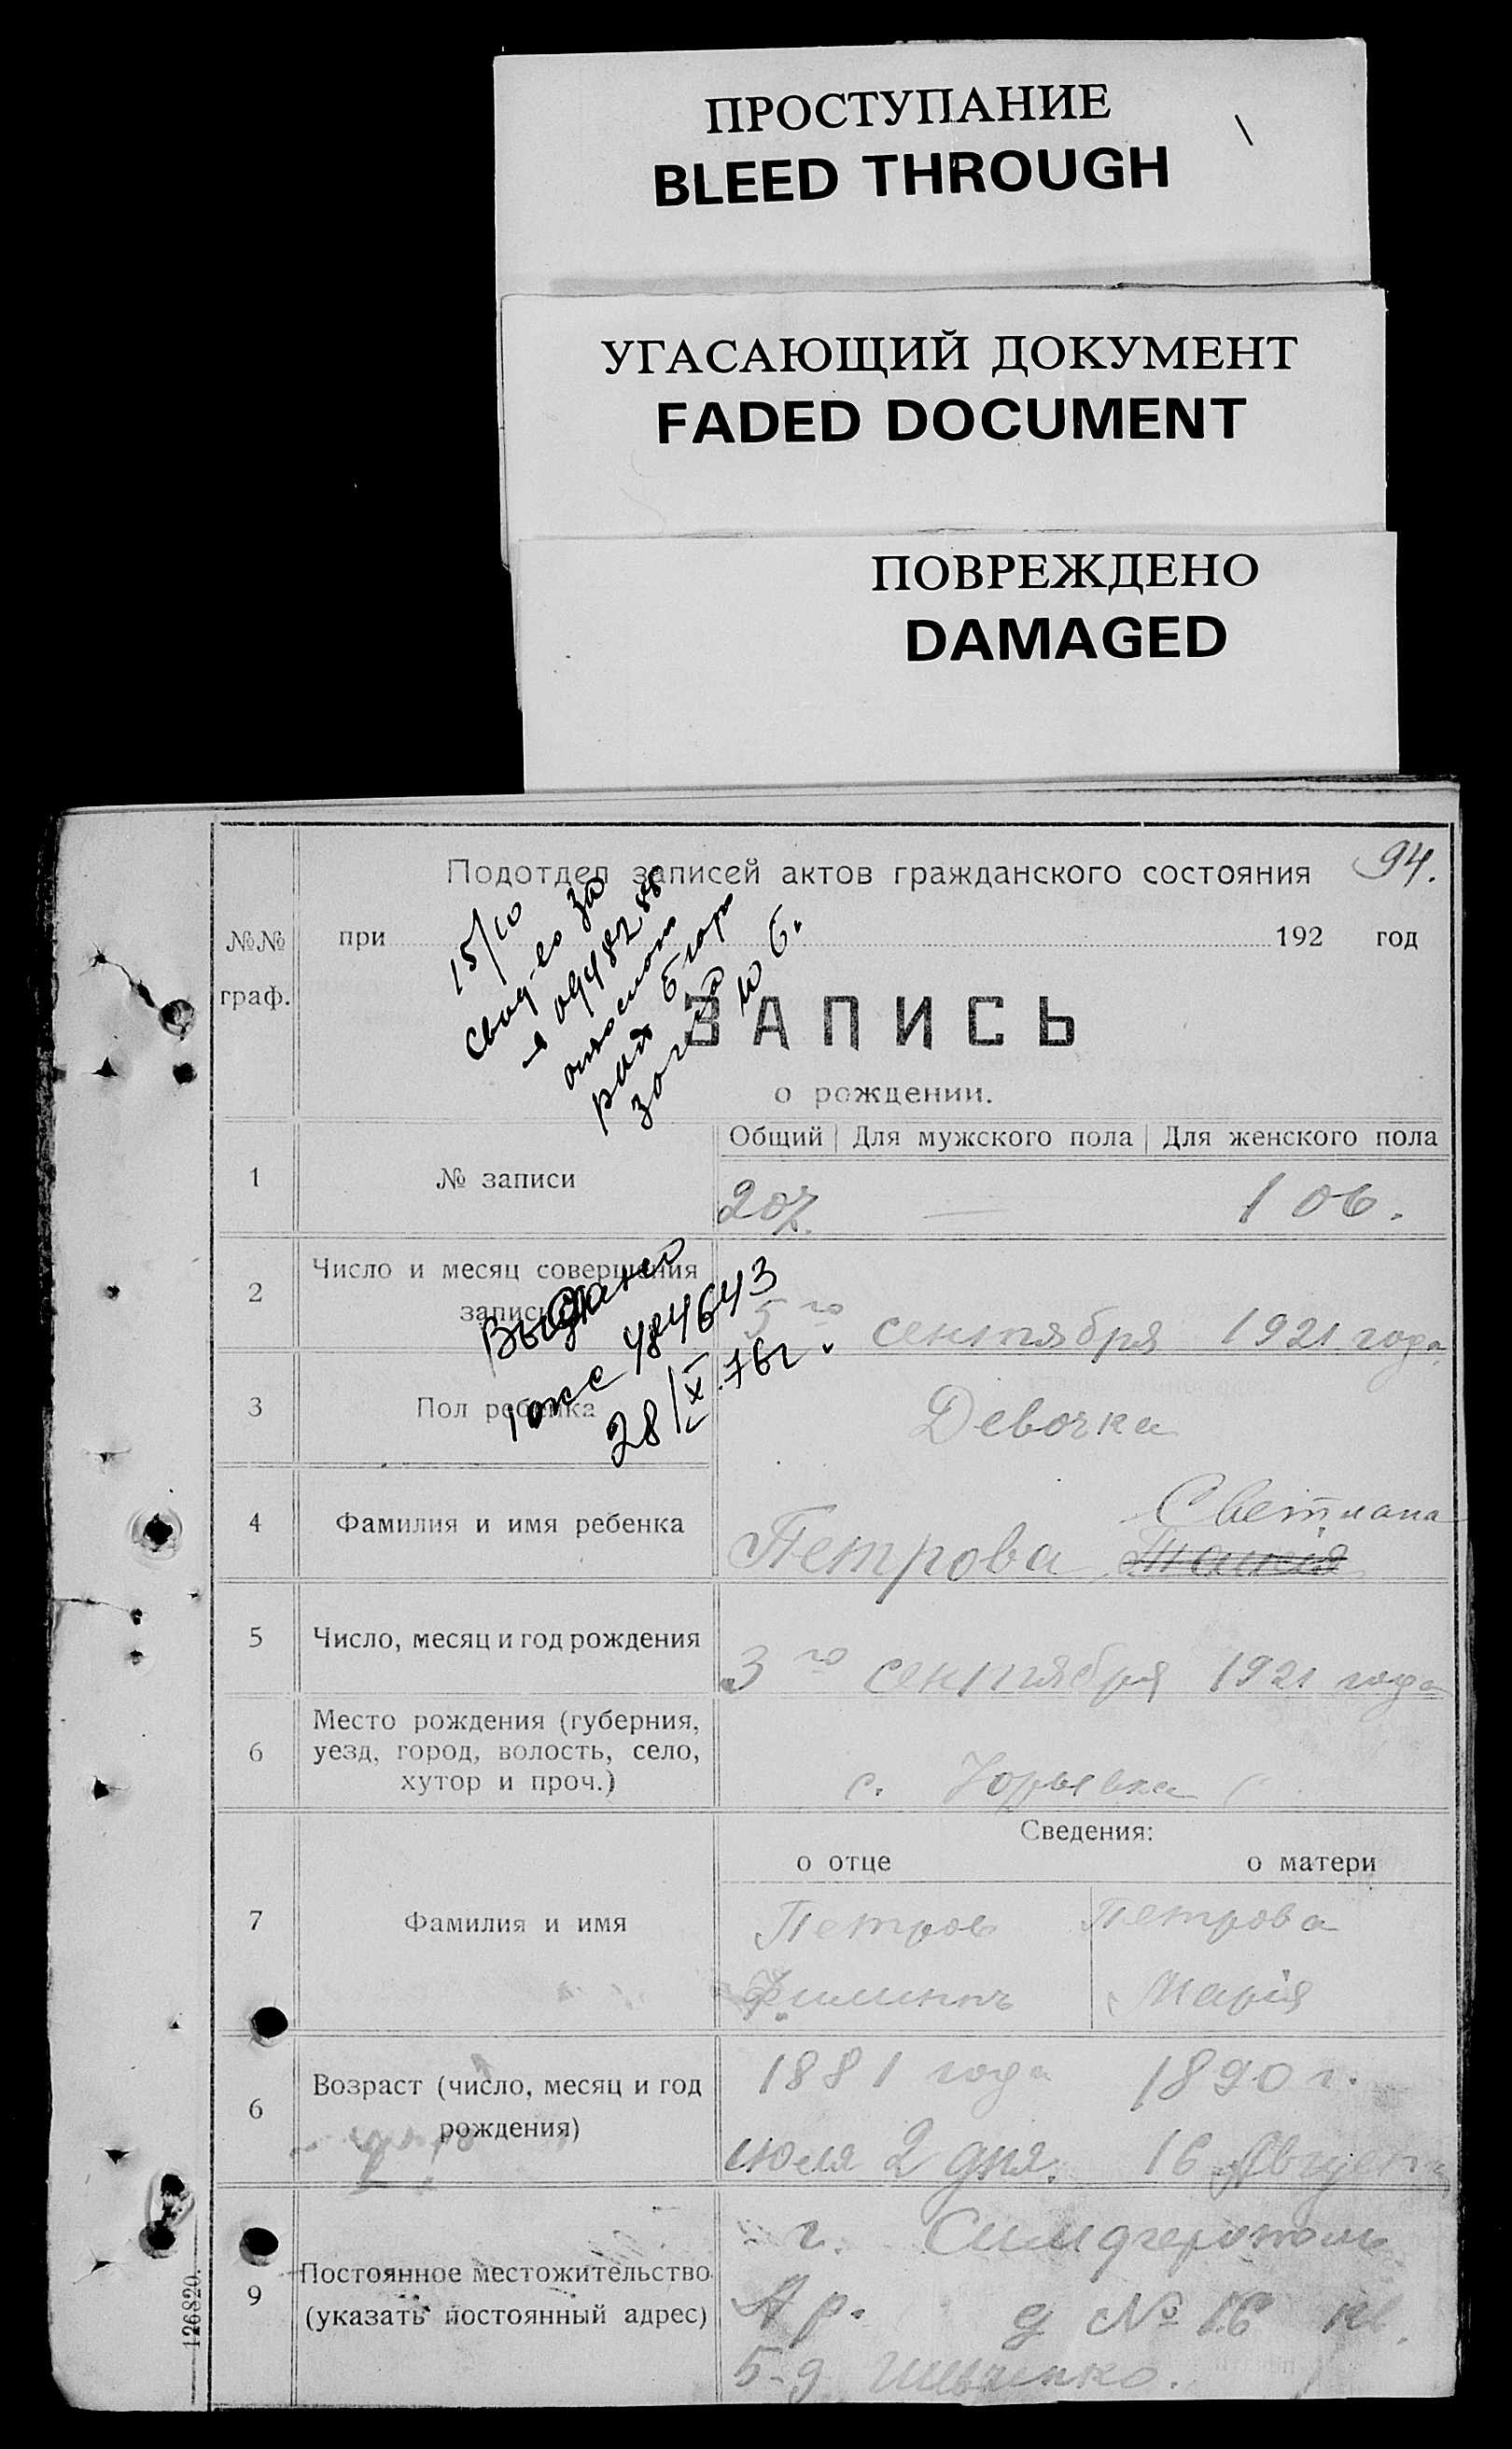 ПРОСТУПАНИЕ
BLEED THROUGH
УГАСАЮЩИЙ ДОКУМЕНТ
FADED DOCUMENT
ПОВРЕЖДЕНО
DAMAGED
94.
Подотдел записей актов гражданского состояния
при 192 год
№№ граф.
15/10
я 0948288
ЗАПИСЬ
о рождении.
Общий Для мужского пола Для женского пола
1 № записи 207. — 106.
2 Число и месяц совершения записи 5го сентября 1921 года
Выдано
484643
28/IX.76г.
3 Пол ребенка Девочка
4 Фамилия и имя ребенка Петрова Светлана
5 Число, месяц и год рождения 3го сентября 1921 года
6 Место рождения (губерния, уезд, город, волость, село, хутор и проч.) с. Юрьевка
Сведения:
о отце о матери
7 Фамилия и имя Петров Петрова
Филиппъ Марія
6 Возраст (число, месяц и год рождения) 1881 года 1890 г.
июля 2 дня. 16 Августа
9 Постоянное местожительство (указать постоянный адрес) г. Симферополь
д № 16 кв.
5-д
126820.